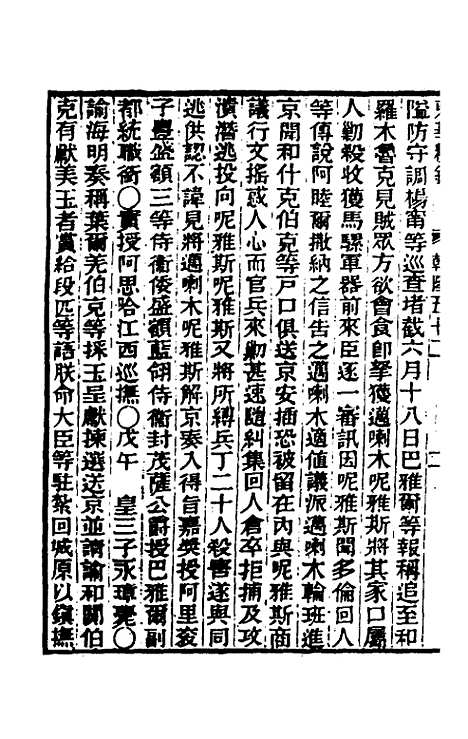 隘防守調楊甯等巡查堵截六月十八日巴雅爾等報稱追至和
羅木魯克見賊眾方欲會食卽拏獲邁喇木呢雅斯將其家口屬
人勦殺收獲馬騾軍器前來臣逐一審訊因呢雅斯聞多倫回人
等傳說阿睦爾撒納之信告之邁喇木適値議派邁喇木輪班進
京聞和什克伯克等戶口俱送京安插恐被留在內與呢雅斯商
議行文搖惑人心而官兵來勦甚速隨糾集回人倉卒拒捕及攻
潰潛逃投向呢雅斯呢雅斯又將所縛兵丁二十人殺害遂與同
逃供認不諱見將邁喇木呢雅斯解京奏入得旨嘉獎授阿里袞
子豐盛額三等侍衞倭盛額藍翎侍衞封茂薩公爵授巴雅爾副
都統職銜〇實授阿思哈江西巡撫〇戊午　皇三子永璋薨〇
諭海明奏稱葉爾羌伯克等採玉呈獻揀選送京並請諭和闐伯
克有獻美玉者賞給段匹等語朕命大臣等駐紮回城原以鎮撫